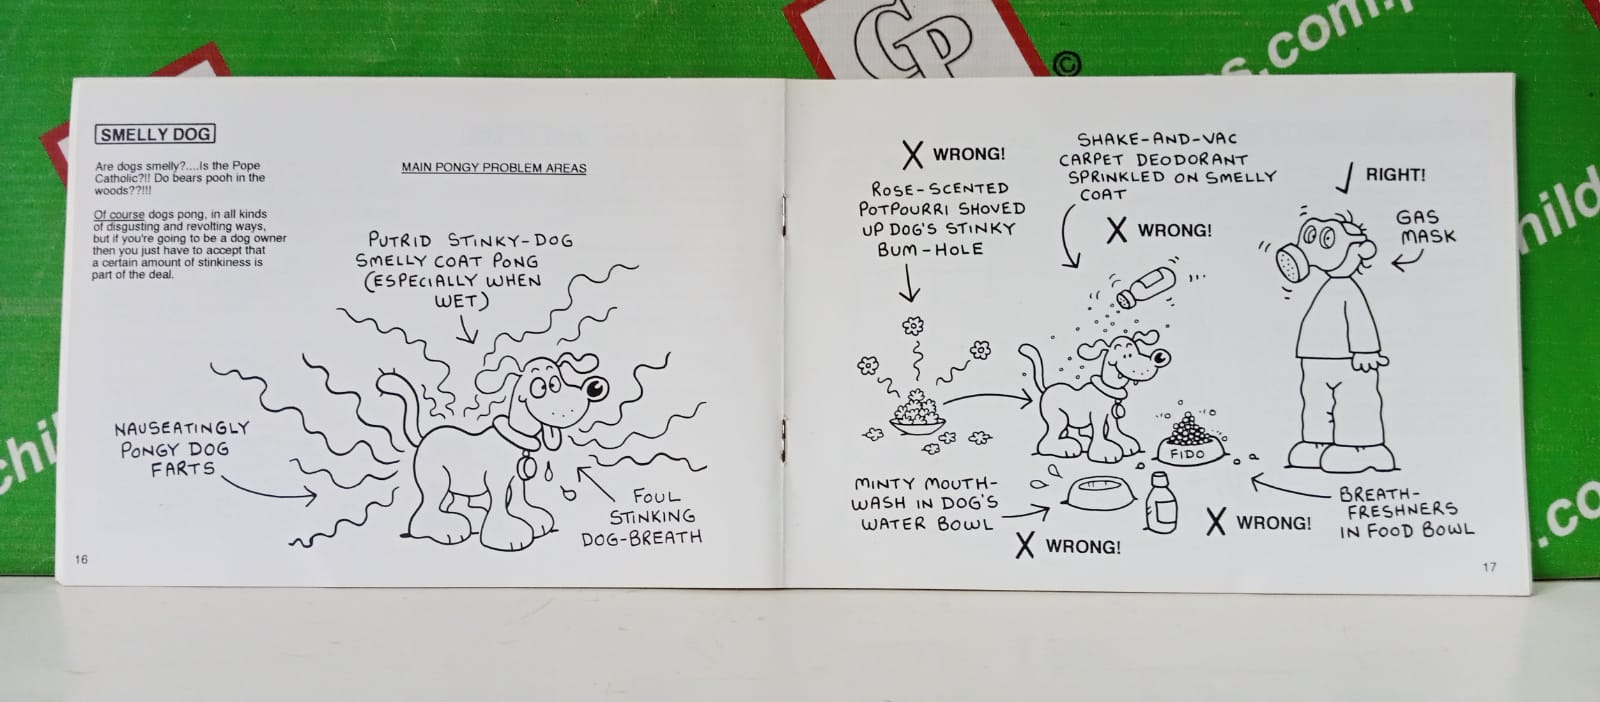 SMELLY DOG
Are dogs smelly?....Is the Pope
Catholic?!! Do bears pooh in the
woods??!!!
Of course dogs pong, in all kinds
of disgusting and revolting ways,
but if you're going to be a dog owner
then you just have to accept that
a certain amount of stinkiness is
part of the deal.
MAIN PONGY PROBLEM AREAS
PUTRID STINKY-DOG
SMELLY COAT PONG
(ESPECIALLY WHEN
WET)
NAUSEATINGLY
PONGY DOG
FARTS
FOUL
STINKING
DOG-BREATH
16
X WRONG!
ROSE-SCENTED
POTPOURRI SHOVED
UP DOG'S STINKY
BUM-HOLE
SHAKE-AND-VAC
CARPET DEODORANT
SPRINKLED ON SMELLY
COAT
X WRONG!
RIGHT!
GAS
MASK
FIDO
MINTY MOUTH-
WASH IN DOG'S
WATER BOWL
X WRONG!
X WRONG!
BREATH-
FRESHNERS
IN FOOD BOWL
17
GP
©
s.com.p
chi
hild
.co